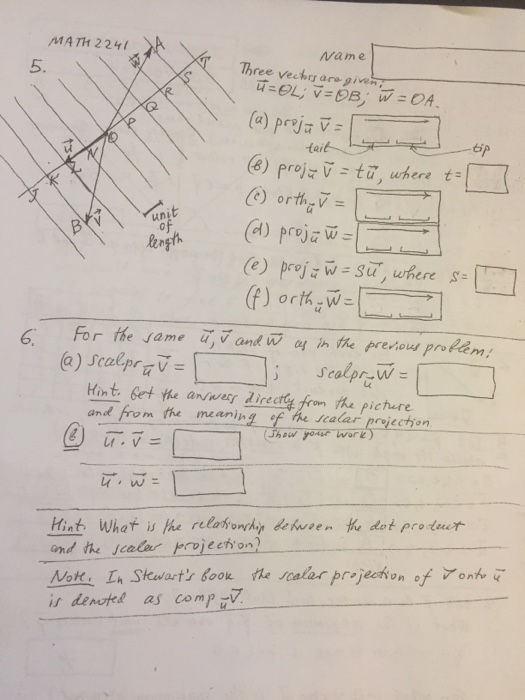 MATH 2241
Name
5.
Three vectors are given:
u = OL; v = OB; w = OA.
(a) proj u v =
tail tip
(b) proj u v = tu, where t =
(c) orth u v =
(d) proj u w =
(e) proj u w = su, where s =
(f) orth u w =
A
w
T
S
R
Q
P
O
u
N
L
K
J
B
v
unit
of
length
6. For the same u, v and w as in the previous problem:
(a) scalpr u v = ; scalpr u w =
Hint. Get the answers directly from the picture
and from the meaning of the scalar projection.
(b) u · v = (Show your work)
u · w =
Hint. What is the relationship between the dot product
and the scalar projection?
Note. In Stewart's book the scalar projection of v onto u
is denoted as comp u v.